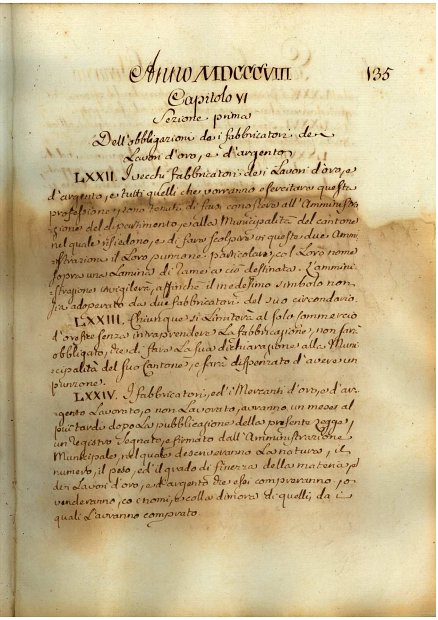 Anno MDCCCVIII 135
Capitolo VI
Sezione prima
Dell'obbligazioni dei fabbricatori de
Lavori d'oro, e d'argento
LXXII. I vecchi fabbricatori dei Lavori d'oro, e
d'argento, e tutti quelli che vorranno esercitare questa
professione sono tenuti di farsi conoscere all'Amminis:
:zione del dipartimento, e alla Municipalità del cantone
nel quale risiedono, e di fare scolpire in queste due Ammi
:istrazioni il Loro punzone particolare, col Loro nome
sopra una Lamina di rame a ciò destinata. L'ammini:
:strazione invigilerà, affinchè il medesimo simbolo non
sia adoperato da due fabbricatori del suo circondario.
LXXIII. Chiunque si Limiterà al solo commercio
d'orefice senza intraprendere La fabbricazione, non sarà
obbligato, che di fare La sua dichiarazione alla Muni:
:cipalità del suo Cantone, e sarà dispensato d'avere un
punzone.
LXXIV. I fabbricatori, ed i Mercanti d'oro, e d'ar:
:gento Lavorato, o non Lavorato, avranno un mese al
più tardi dopo La pubblicazione della presente Legge,
un Registro segnato, e firmato dall'Amministrazione
Municipale, nel quale descriveranno La natura, il
numero, il peso, ed il grado di finezza della materia, e
dei Lavori d'oro, e d'argento che essi compreranno, o
venderanno, co' nomi, e colla dimora di quelli, da i
quali L'avranno comprato.